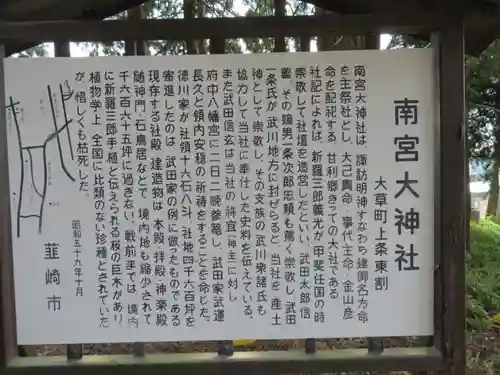 南宮大神社
大草町上条東割
南宮大神社は、諏訪明神すなわち建御名方命
を主祭社とし、大己貴命　事代主命・金山彦
命を配祀する　甘利郷きっての大社である
社記によれば、新羅三郎義光が甲斐任国の時
崇敬して社壇を造営したといい、武田太郎信
義、その嫡男一条次郎忠頼も篤く崇敬し、武田
一条氏が武川地方に封ぜらると、当社を産土
神として崇敬し、その支族の武川衆諸氏も
協力して当社に奉仕した史料を伝えている。
また武田信玄は当社の祢宜(神主)に対し
府中八幡宮に二日二晩参籠し、武田家武運
長久と領内安穏の祈祷をすることを命じた。
徳川家が社領十六石八斗、社地四千六百坪を
寄進したのは、武田家の例に倣ったものである
現存する社殿、建造物は、本殿、拝殿、神楽殿
随神門、石鳥居などで、境内地も縮少されて
千六百六十五坪に過ぎない、戦前までは、境内
に新羅三郎手植と伝えられる桜の巨木があり
植物学上、全国に比類のない珍種とされていた
が　惜しくも枯死した。
昭和五十九年十月
韮崎市